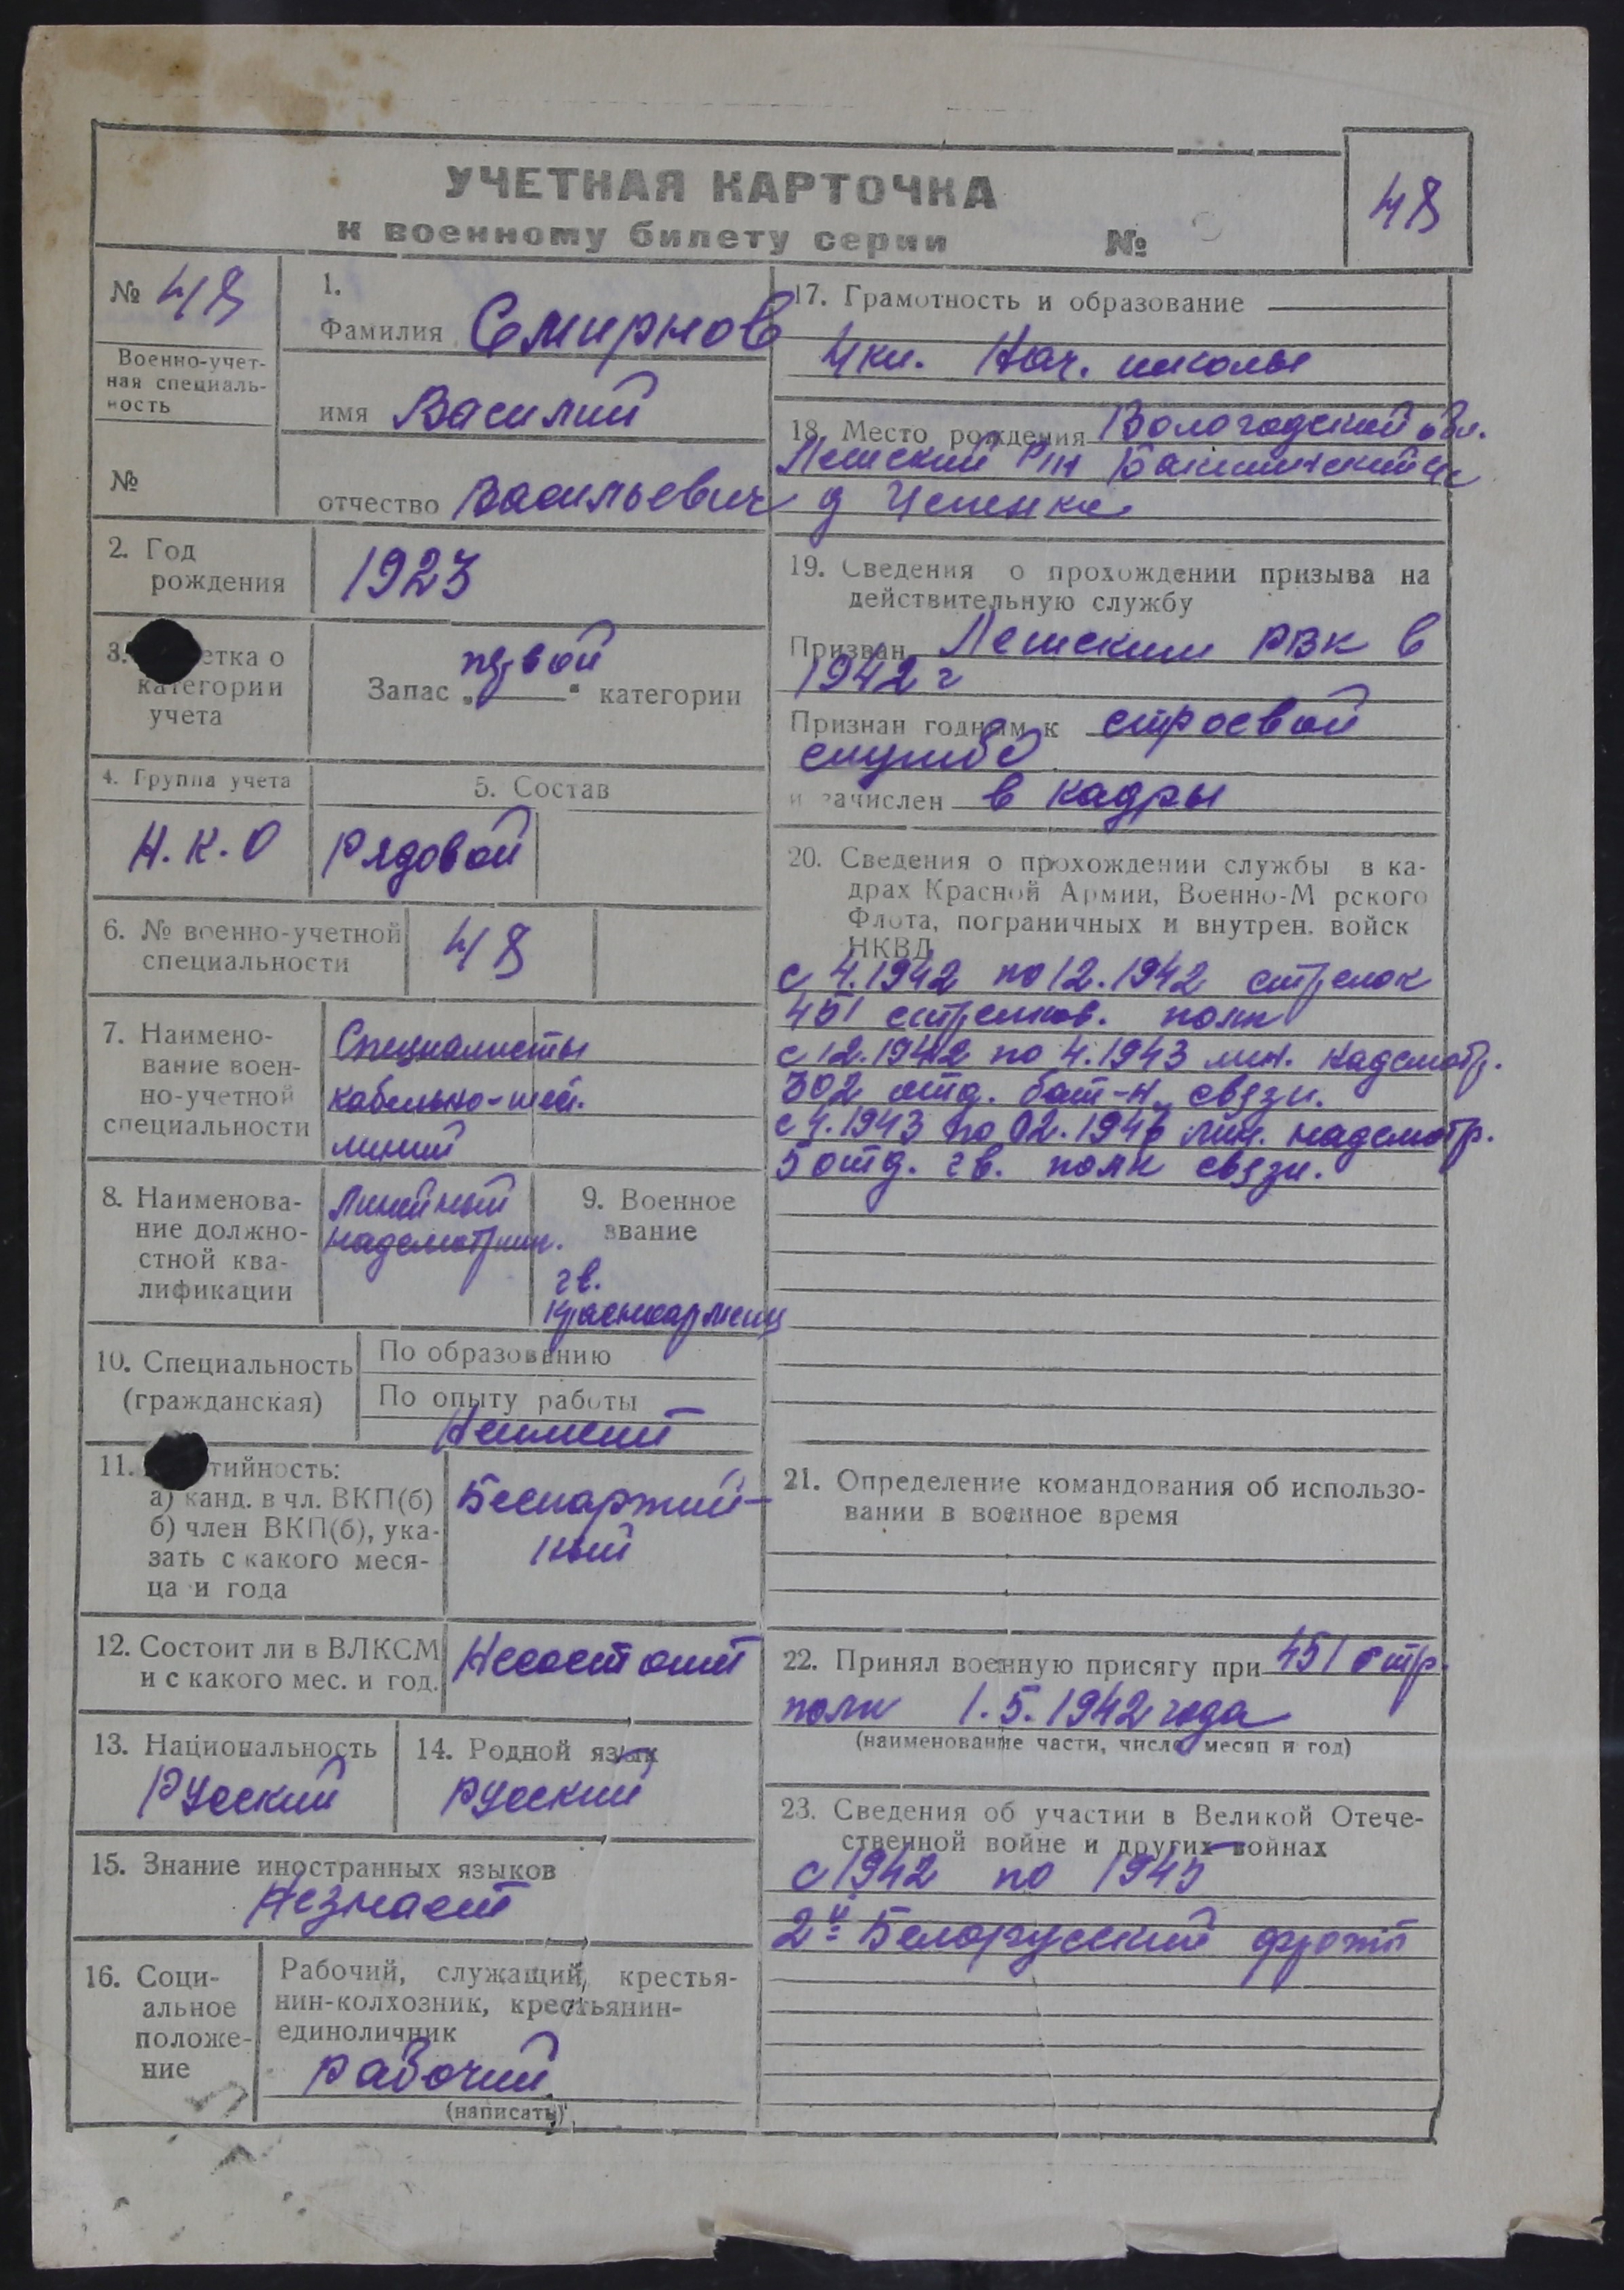 УЧЕТНАЯ КАРТОЧКА
к военному билету серии №
48
№ 48
Военно-учет-
ная специаль-
ность
№
1.
Фамилия Смирнов
имя Василий
отчество Васильевич
2. Год
рождения
1923
3. етка о
категории
учета
первой
Запас „ “ категории
4. Группа учета
Н.К.О
5. Состав
Рядовой
6. № военно-учетной
специальности
48
7. Наимено-
вание воен-
но-учетной
специальности
Специалисты
кабельно-шес.
линий
8. Наименова-
ние должно-
стной ква-
лификации
Линейный
надсмотрщик.
9. Военное
звание
гв.
красноармеец
10. Специальность
(гражданская)
По образованию
По опыту работы
Неимеет
11. тийность:
а) канд. в чл. ВКП(б)
б) член ВКП(б), ука-
зать с какого меся-
ца и года
Беспартий-
ный
12. Состоит ли в ВЛКСМ
и с какого мес. и год.
Несостоит
13. Национальность
Русский
14. Родной язык
Русский
15. Знание иностранных языков
Незнает
16. Соци-
альное
положе-
ние
Рабочий, служащий, крестья-
нин-колхозник, крестьянин-
единоличник
рабочий
(написать)
17. Грамотность и образование
4 кл. Нач. школы
18. Место рождения Вологодской обл.
Лежский р/н
д
19. Сведения о прохождении призыва на
действительную службу
Призван Лежским РВК в
1942 г
Признан годным к строевой
службе
и зачислен в кадры
20. Сведения о прохождении службы в ка-
драх Красной Армии, Военно-М рского
Флота, пограничных и внутрен. войск
НКВД
с 4.1942 по 12.1942 стрелок
451 стрелков. полк
с 12.1942 по 4.1943 лин. надсмотр.
302 отд. бат-н связи.
с 4.1943 по 02.1946 лин. надсмотр.
5 отд. гв. полк связи.
21. Определение командования об использо-
вании в военное время
22. Принял военную присягу при 451 стр.
полк 1.5.1942 года
(наименование части, число, месяц и год)
23. Сведения об участии в Великой Отече-
ственной войне и других войнах
с 1942 по 1945
2й Белорусский фронт